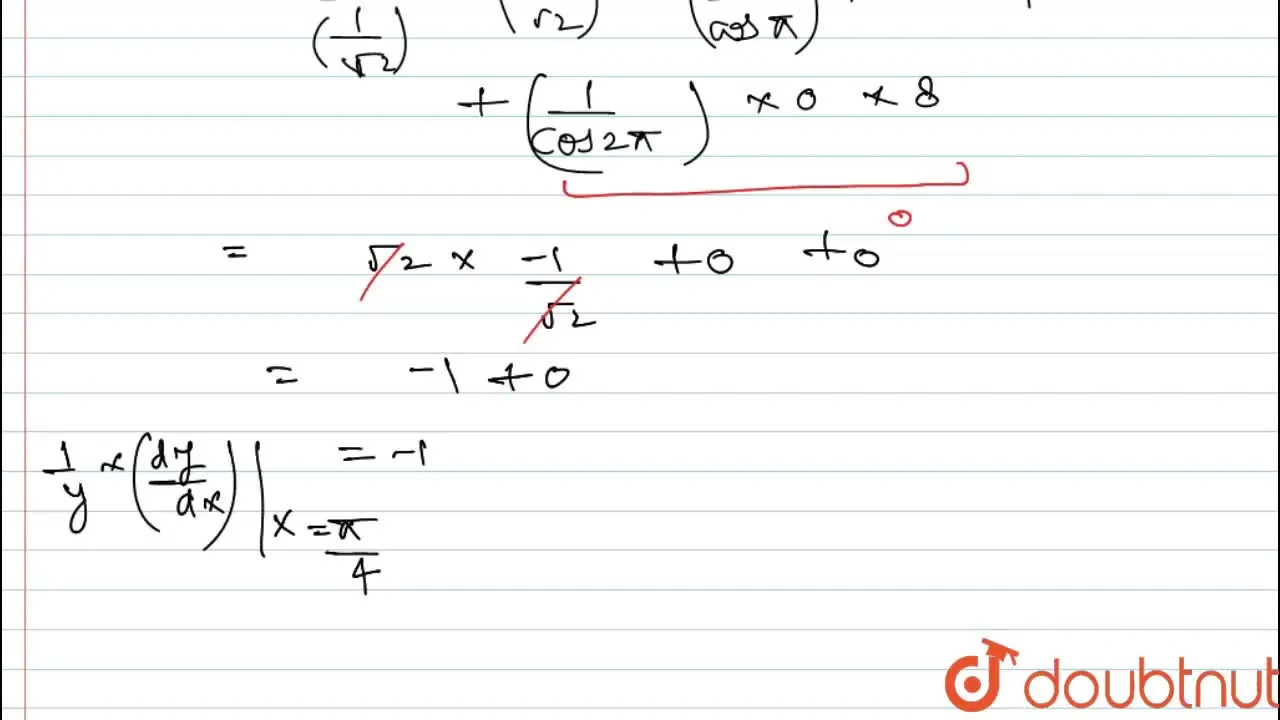 (1/√2) (√2) (cos π)
+ (1/cos 2π) × 0 × 8
0
= √2 × -1/√2 + 0 + 0
= -1 + 0
1/y × (dy/dx) | x = π/4 = -1
doubtnut